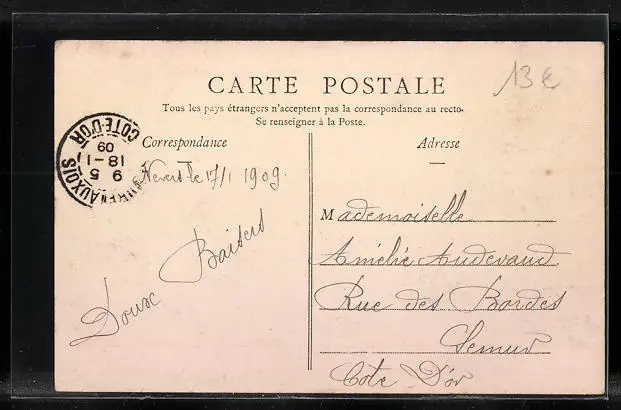 13 €
CARTE POSTALE
Tous les pays étrangers n'acceptent pas la correspondance au recto.
Se renseigner à la Poste.
Correspondance
Adresse
COTE-D'OR
09
18-1
9 5
EN-AUXOIS
Nevers le 17/1 1909.
Doux Baisers
Mademoiselle
Amélie Audevaud
Rue des Bordes
Semur
Cote D'or